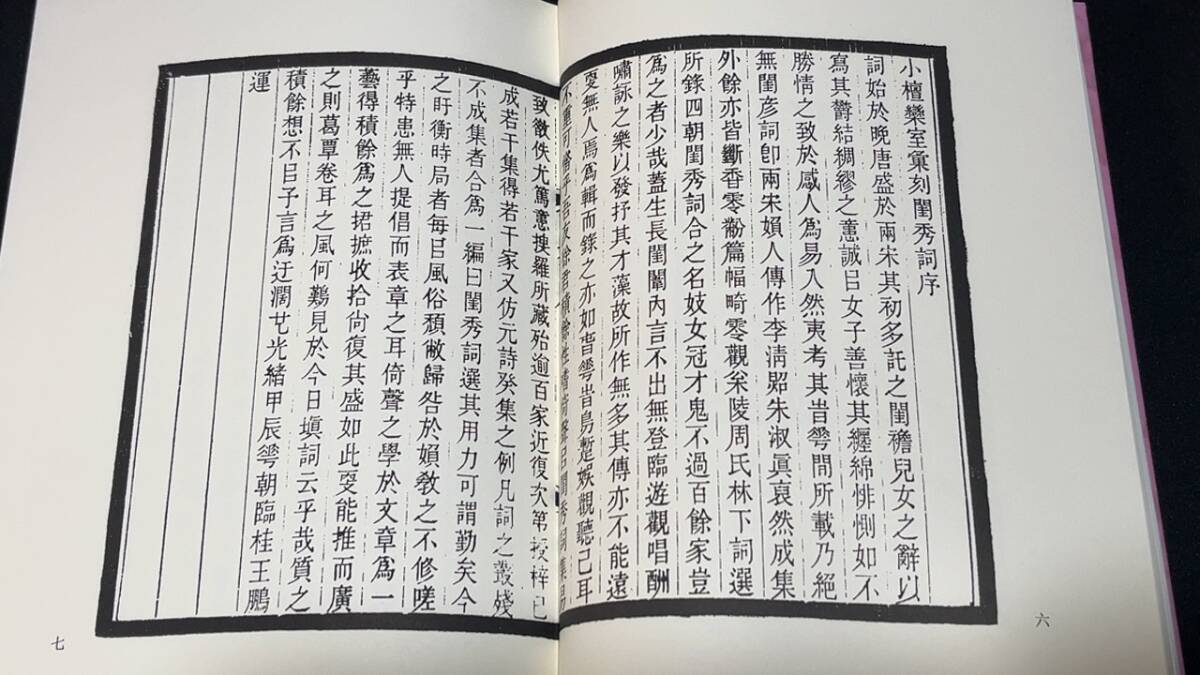 小檀欒室彙刻閨秀詞序
詞始於晚唐盛於兩宋其初多託之閨襜兒女之辭以
寫其鬱結綢繆之悳誠㠯女子善懷其纏綿悱惻如不
勝情之致於感人爲易入然夷考其旹䔢間所載乃絕
無閨彥詞卽兩宋嬪人傳作李淸照朱淑眞裒然成集
外餘亦皆斷香零粉篇幅畸零觀㷊陵周氏林下詞選
所錄四朝閨秀詞合之名妓女冠才鬼不過百餘家豈
爲之者少哉蓋生長閨闈內言不出無登臨遊觀唱酬
嘯詠之樂以發抒其才藻故所作無多其傳亦不能遠
㪅無人焉爲輯而錄之亦如春䔢旹鳥蹔娛觀聽已耳
致徵佚尤篤悳搜羅所藏殆逾百家近復次第授梓已
成若干集得若干家又仿元詩癸集之例凡詞之叢殘
不成集者合爲一編曰閨秀詞選其用力可謂勤矣今
之盱衡時局者每㠯風俗頹敝歸咎於嬪敎之不修嗟
乎特患無人提倡而表章之耳倚聲之學於文章爲一
藝得積餘爲之捃摭收拾尙復其盛如此㪅能推而廣
之則葛覃卷耳之風何鷄見於今日塡詞云乎哉質之
積餘想不㠯予言爲迂濶也光緒甲辰䔢朝臨桂王鵬
運
六
七